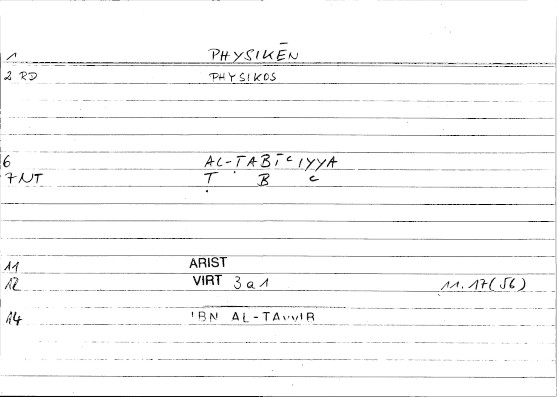 1 PHYSIKĒN
2 RD PHYSIKOS
6 AL-ṬABĪᶜIYYA
7 NT Ṭ B ᶜ
11 ARIST
12 VIRT 3a1 11.17(56)
14 IBN AL-ṬAYYIB